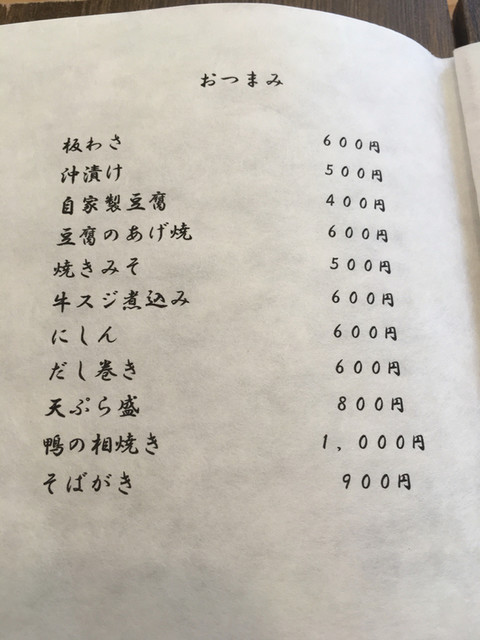 おつまみ
板わさ 600円
沖漬け 500円
自家製豆腐 400円
豆腐のあげ焼 600円
焼きみそ 500円
牛スジ煮込み 600円
にしん 600円
だし巻き 600円
天ぷら盛 800円
鴨の相焼き 1,000円
そばがき 900円